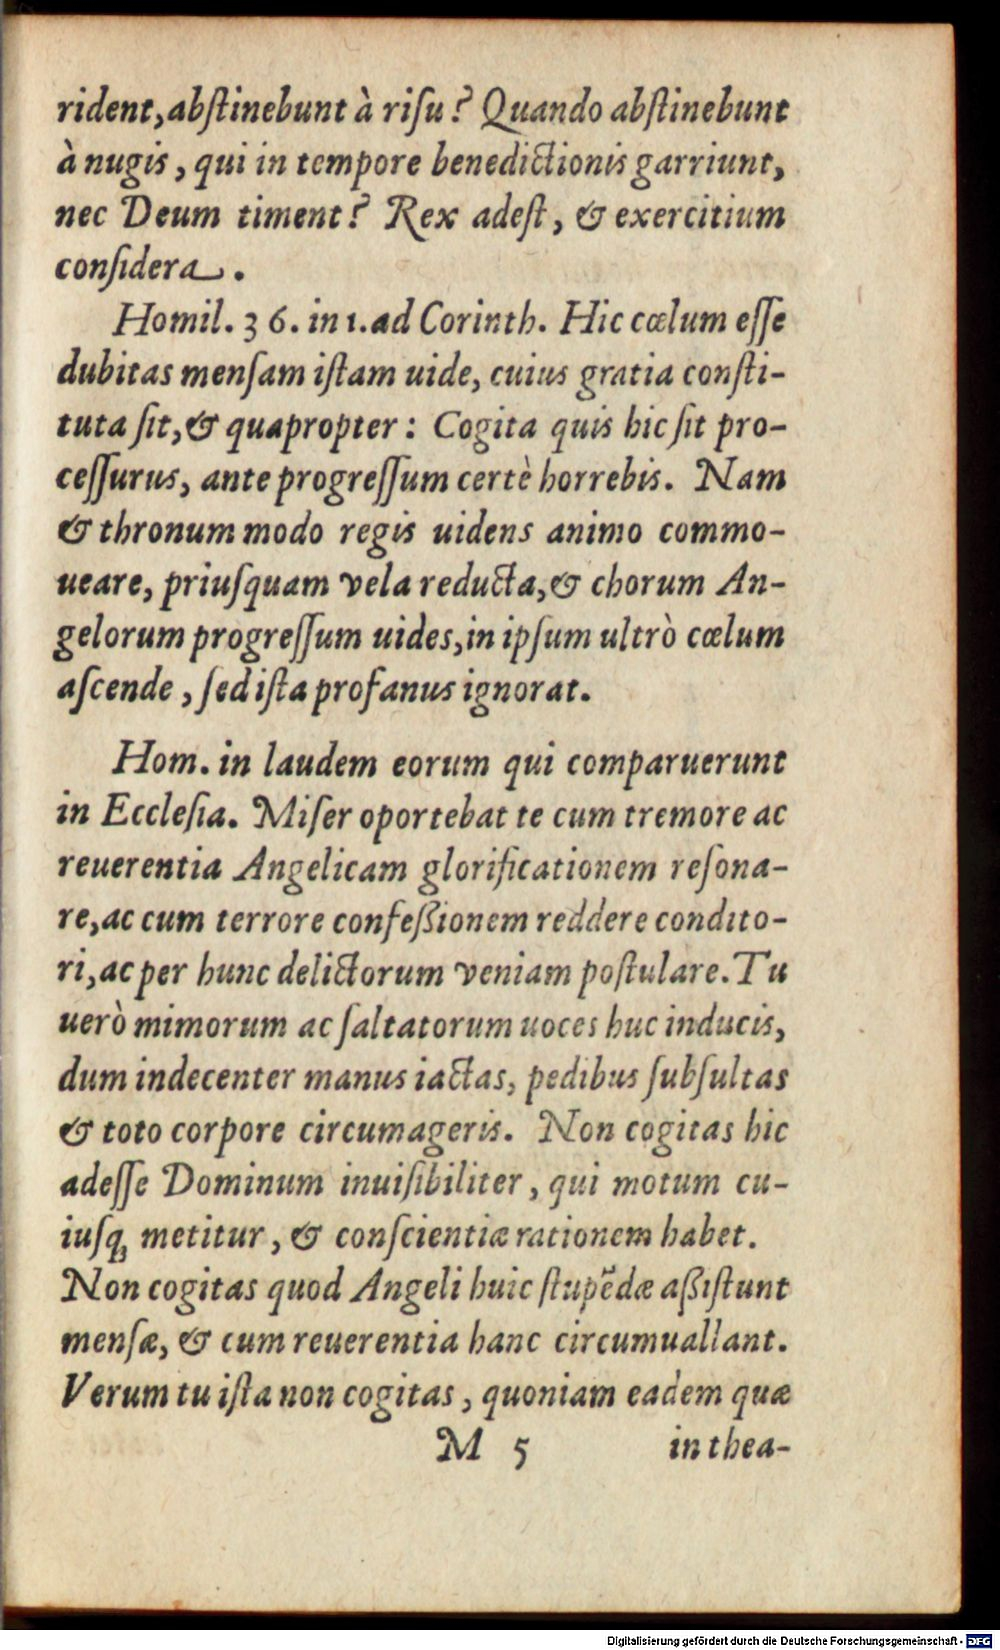 rident, abſtinebunt à riſu? Quando abſtinebunt
à nugis, qui in tempore benedictionis garriunt,
nec Deum timent? Rex adeſt, & exercitium
conſidera.
Homil. 36. in 1. ad Corinth. Hic cœlum eſſe
dubitas menſam iſtam uide, cuius gratia conſti-
tuta ſit, & quapropter: Cogita quis hic ſit pro-
ceſſurus, ante progreſſum certè horrebis. Nam
& thronum modo regis uidens animo commo-
ueare, priuſquam vela reducta, & chorum An-
gelorum progreſſum uides, in ipſum ultrò cœlum
aſcende, ſed iſta profanus ignorat.
Hom. in laudem eorum qui comparuerunt
in Eccleſia. Miſer oportebat te cum tremore ac
reuerentia Angelicam glorificationem reſona-
re, ac cum terrore confeßionem reddere condito-
ri, ac per hunc delictorum veniam poſtulare. Tu
uerò mimorum ac ſaltatorum uoces huc inducis,
dum indecenter manus iactas, pedibus ſubſultas
& toto corpore circumageris. Non cogitas hic
adeſſe Dominum inuiſibiliter, qui motum cu-
iuſq; metitur, & conſcientiæ rationem habet.
Non cogitas quod Angeli huic ſtupēdæ aßiſtunt
menſæ, & cum reuerentia hanc circumuallant.
Verum tu iſta non cogitas, quoniam eadem quæ
M 5 in thea-
Digitalisierung gefördert durch die Deutsche Forschungsgemeinschaft - DFG